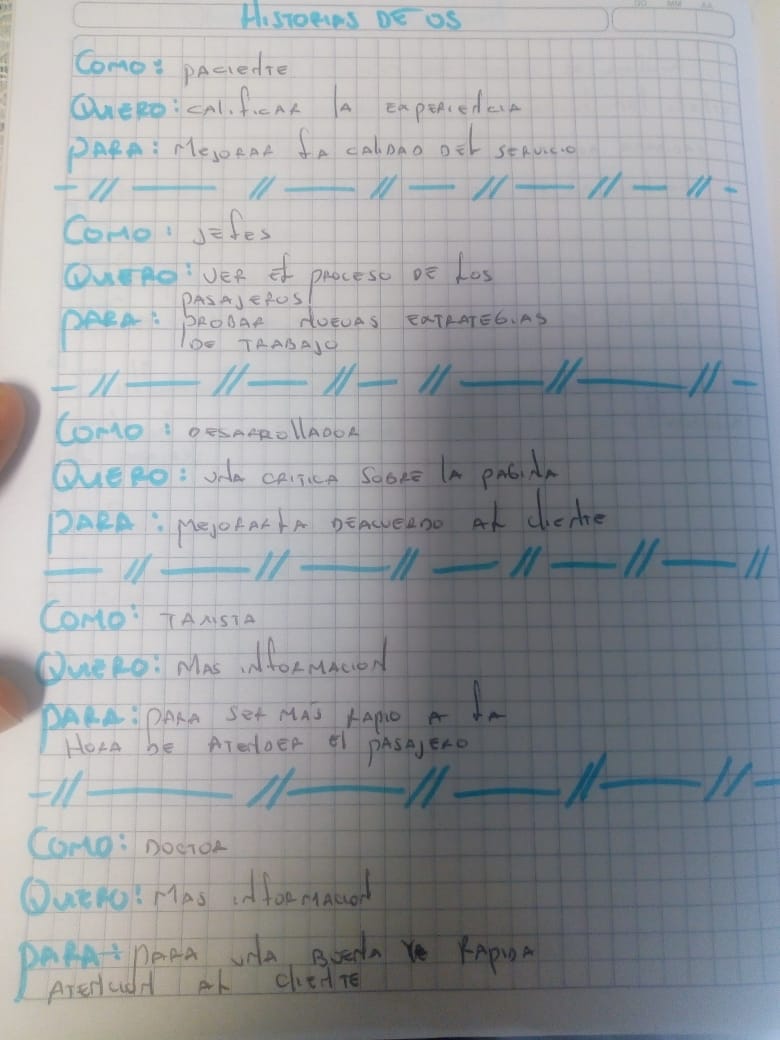 HISTORIAS DE US
DD MM AA
COMO: PACIENTE
QUIERO: CALIFICAR LA EXPERIENCIA
PARA: MEJORAR LA CALIDAD DEL SERVICIO
COMO: JEFES
QUIERO: VER EL PROCESO DE LOS
PASAJEROS
PARA: PROBAR NUEVAS EXTRATEGIAS
DE TRABAJO
COMO: DESARROLLADOR
QUIERO: UNA CRITICA SOBRE LA PAGINA
PARA: MEJORARLA DEACUERDO AL CLIENTE
COMO: TAXISTA
QUIERO: MAS INFORMACION
PARA: PARA SER MÁS RAPIO A LA
HORA DE ATENDER EL PASAJERO
COMO: DOCTOR
QUIERO: MAS INFORMACION
PARA: PARA UNA BUENA Y RAPIDA
ATENCION AL CLIENTE